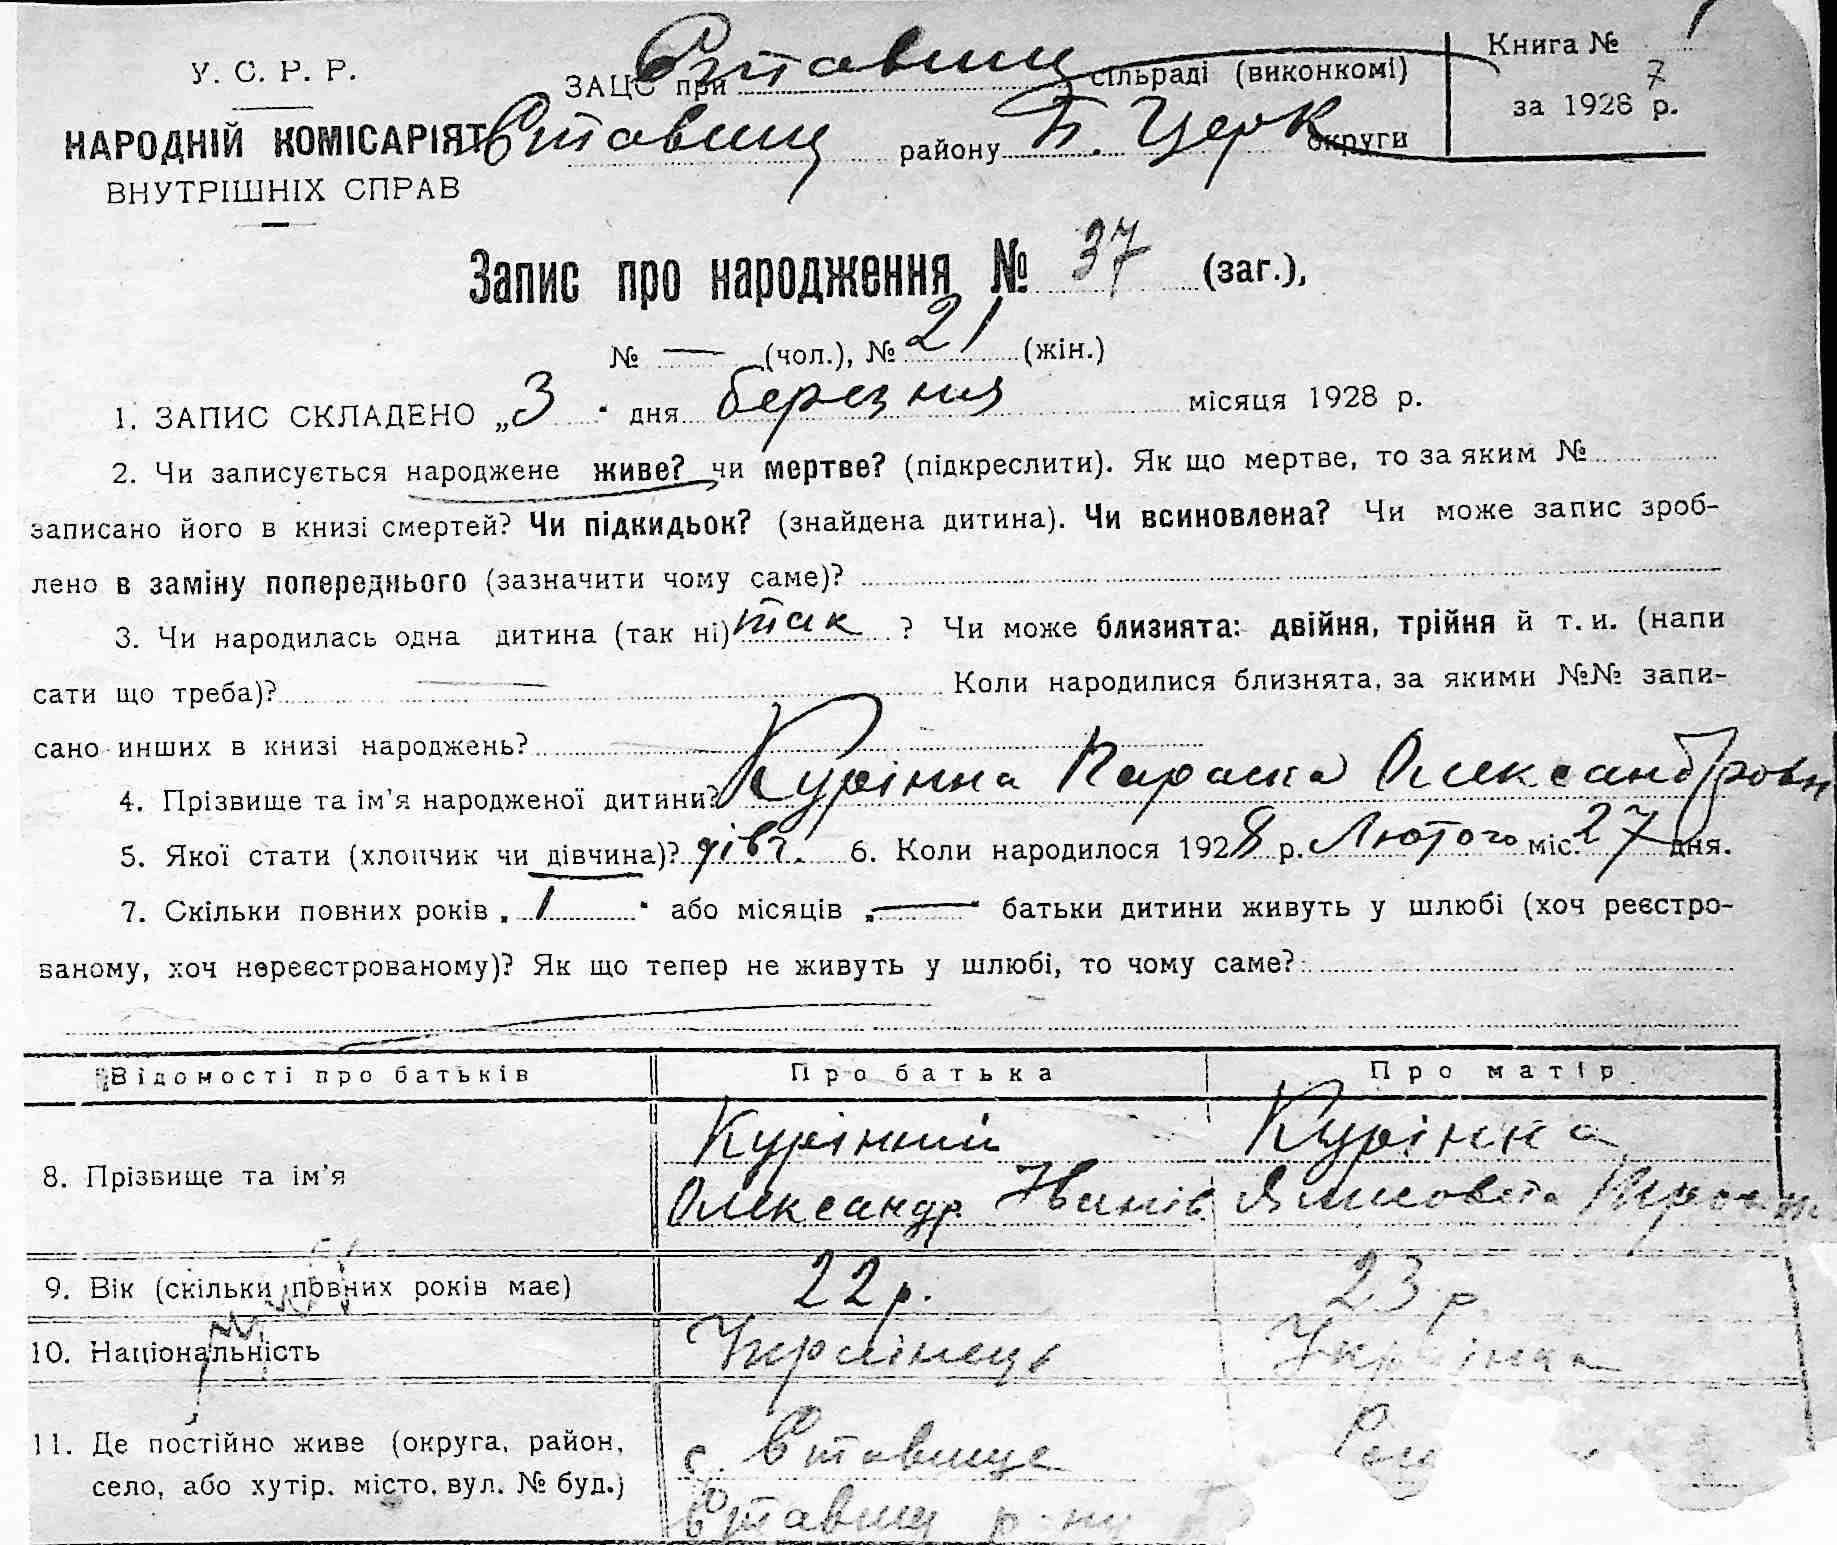 У. С. Р. Р.
НАРОДНІЙ КОМІСАРІЯТ
ВНУТРІШНІХ СПРАВ
ЗАЦС при Ставищ сільраді (виконкомі)
Ставищ району Б. Церк округи
Книга №
за 1928 р. 7
Запис про народження № 37 (заг.),
№ — (чол.), № 21 (жін.)
1. ЗАПИС СКЛАДЕНО „3 " дня березня місяця 1928 р.
2. Чи записується народжене живе? чи мертве? (підкреслити). Як що мертве, то за яким №
записано його в книзі смертей? Чи підкидьок? (знайдена дитина). Чи всиновлена? Чи може запис зроб-
лено в заміну попереднього (зазначити чому саме)?
3. Чи народилась одна дитина (так ні) так ? Чи може близнята: двійня, трійня й т. и. (напи
сати що треба)? — Коли народилися близнята, за якими №№ запи-
сано инших в книзі народжень?
4. Прізвище та ім'я народженої дитини? Курінна Параска Олександровн
5. Якої стати (хлопчик чи дівчина)? дівч. 6. Коли народилося 1928 р. Лютого міс. 27 дня.
7. Скільки повних років „ 1 " або місяців „ — " батьки дитини живуть у шлюбі (хоч реєстро-
ваному, хоч нереєстрованому)? Як що тепер не живуть у шлюбі, то чому саме?
Відомості про батьків Про батька Про матір
8. Прізвище та ім'я Курінний Курінна
Олександр Іванів
9. Вік (скільки повних років має) 22 р. 23 р.
10. Національність Українець Українка
11. Де постійно живе (округа, район,
село, або хутір, місто, вул. № буд.)
с. Ставище
Ставищ р-ну